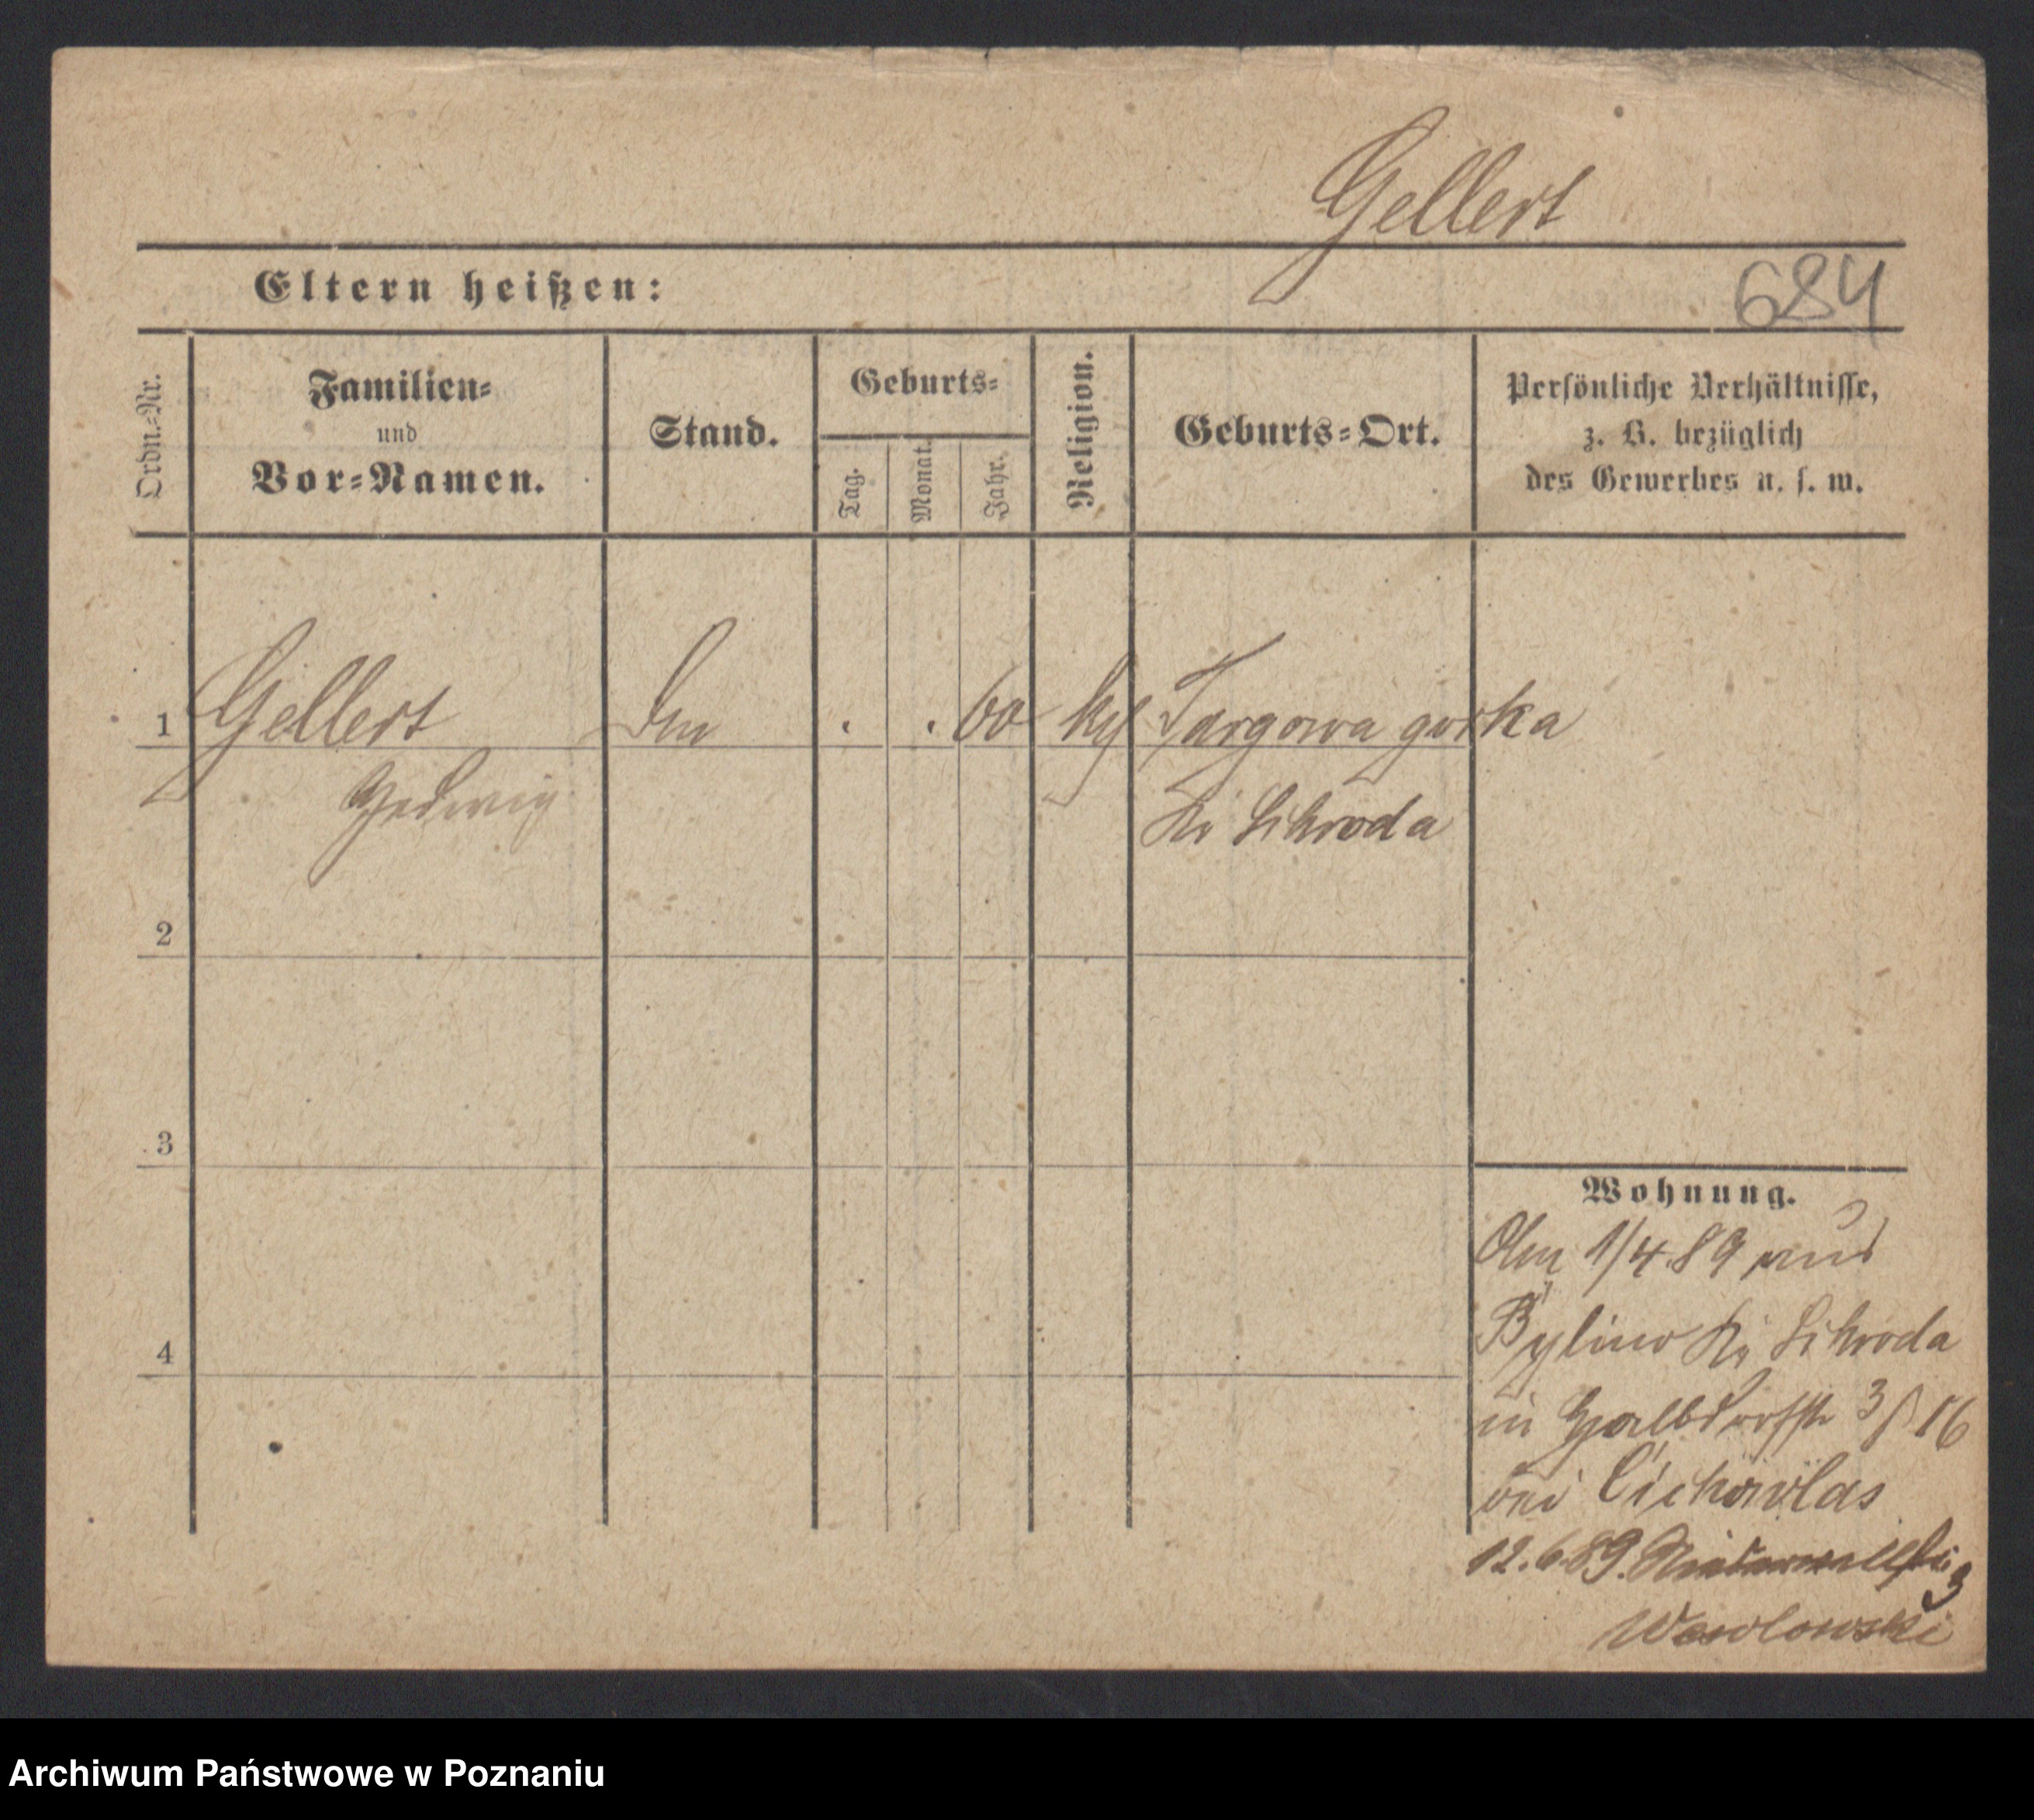 Gellert
Eltern heißen:
684
Ordn.-Nr.
Familien-
und
Vor-Namen.
Stand.
Geburts-
Tag.
Monat.
Jahr.
Religion.
Geburts-Ort.
Persönliche Verhältnisse,
z. B. bezüglich
des Gewerbes u. s. w.
1 Gellert . . 60 kh Targowa gorka
Hedwig
Kr Schroda
2
3
4
Wohnung.
1/4.89 aus
Bylino Kr Schroda
in Halbdorfstr 16
bei Cichowlas
12.6.89.
3
Wawlowski
Archiwum Państwowe w Poznaniu